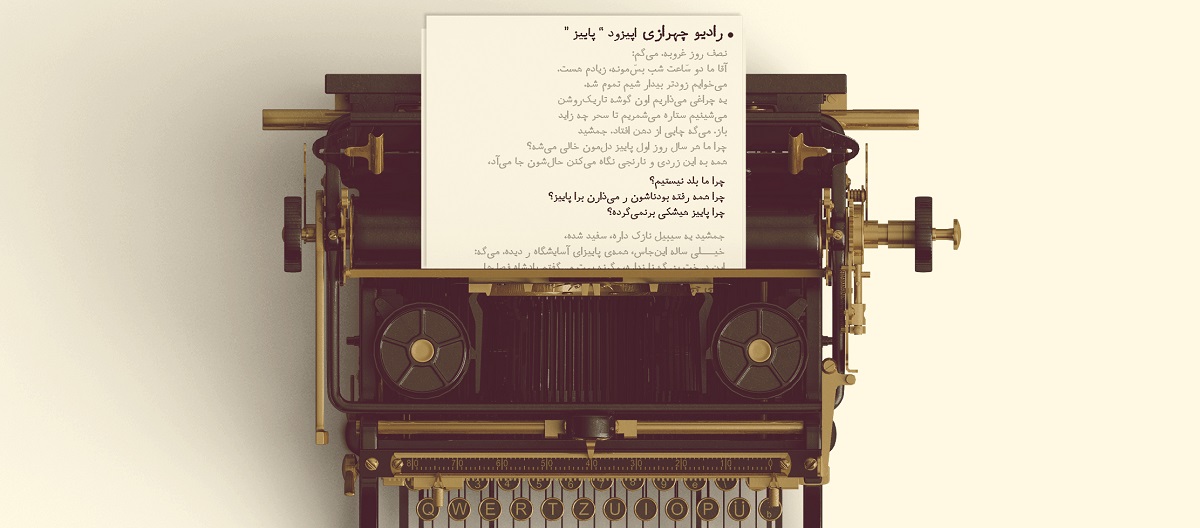 • رادیو چهرازی اپیزود “ پاییز ”
نصف روز غروبه. می‌گم:
آقا ما دو ساعت شب بسّ‌مونه، زیادم هست.
می‌خوایم زودتر بیدار شیم تموم شه.
یه چراغی می‌ذاریم اون گوشه تاریک‌روشن
می‌شینیم ستاره می‌شمریم تا سحر چه زاید
باز. می‌گه چایی از دهن افتاد. جمشید
چرا ما هر سال روز اول پاییز دل‌مون خالی می‌شه؟
همه به این زردی و نارنجی نگاه می‌کنن حال‌شون جا می‌آد،
چرا ما بلد نیستیم؟
چرا همه رفته بودناشون ر می‌ذارن برا پاییز؟
چرا پاییز هیشکی برنمی‌گرده؟
جمشید یه سیبیل نازک داره، سفید شده،
خیـــلی ساله این‌جاس، همه‌ی پاییزای آسایشگاه ر دیده. می‌گه:
80 70 60 50 40 30 20 10 0
3 4 5 6 7 8 9
Q W E R T Z U I O P Ü